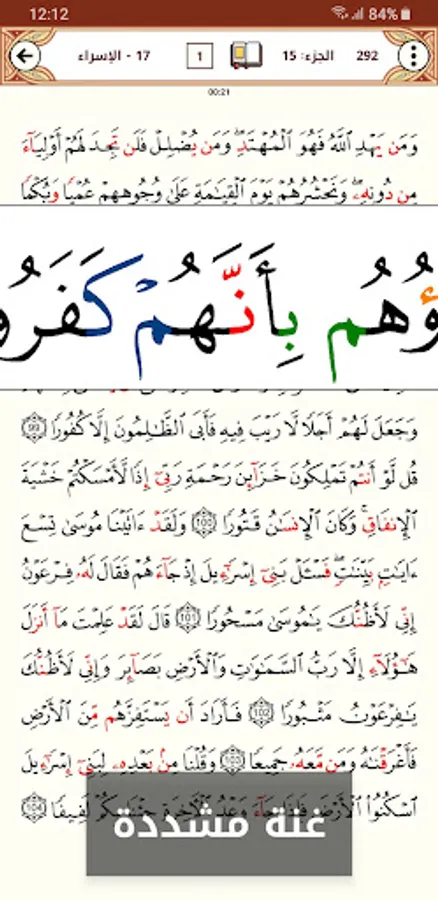 12:12 84%
292 الجزء: 15 1 17 - الإسراء
00:21
وَمَن يَهْدِ ٱللَّهُ فَهُوَ ٱلْمُهْتَدِۖ وَمَن يُضْلِلْ فَلَن تَجِدَ لَهُمْ أَوْلِيَآءَ
مِن دُونِهِۦۖ وَنَحْشُرُهُمْ يَوْمَ ٱلْقِيَٰمَةِ عَلَىٰ وُجُوهِهِمْ عُمْيًا وَبُكْمًا
ؤُهُم بِأَنَّهُمْ كَفَرُو
وَجَعَلَ لَهُمْ أَجَلًا لَّا رَيْبَ فِيهِ فَأَبَى ٱلظَّٰلِمُونَ إِلَّا كُفُورًا 99
قُل لَّوْ أَنتُمْ تَمْلِكُونَ خَزَآئِنَ رَحْمَةِ رَبِّىٓ إِذًا لَّأَمْسَكْتُمْ خَشْيَةَ
ٱلْإِنفَاقِۚ وَكَانَ ٱلْإِنسَٰنُ قَتُورًا 100 وَلَقَدْ ءَاتَيْنَا مُوسَىٰ تِسْعَ
ءَايَٰتٍۭ بَيِّنَٰتٍۖ فَسْـَٔلْ بَنِىٓ إِسْرَٰٓءِيلَ إِذْ جَآءَهُمْ فَقَالَ لَهُۥ فِرْعَوْنُ
إِنِّى لَأَظُنُّكَ يَٰمُوسَىٰ مَسْحُورًا 101 قَالَ لَقَدْ عَلِمْتَ مَآ أَنزَلَ
هَٰٓؤُلَآءِ إِلَّا رَبُّ ٱلسَّمَٰوَٰتِ وَٱلْأَرْضِ بَصَآئِرَ وَإِنِّى لَأَظُنُّكَ
يَٰفِرْعَوْنُ مَثْبُورًا 102 فَأَرَادَ أَن يَسْتَفِزَّهُم مِّنَ ٱلْأَرْضِ
فَأَغْرَقْنَٰهُ وَمَن مَّعَهُۥ جَمِيعًا 103 وَقُلْنَا مِنۢ بَعْدِهِۦ لِبَنِىٓ إِسْرَٰٓءِيلَ
ٱسْكُنُوا۟ ٱلْأَرْضَ فَإِذَا جَآءَ وَعْدُ ٱلْءَاخِرَةِ جِئْنَا بِكُمْ لَفِيفًا 104
غنة مشددة